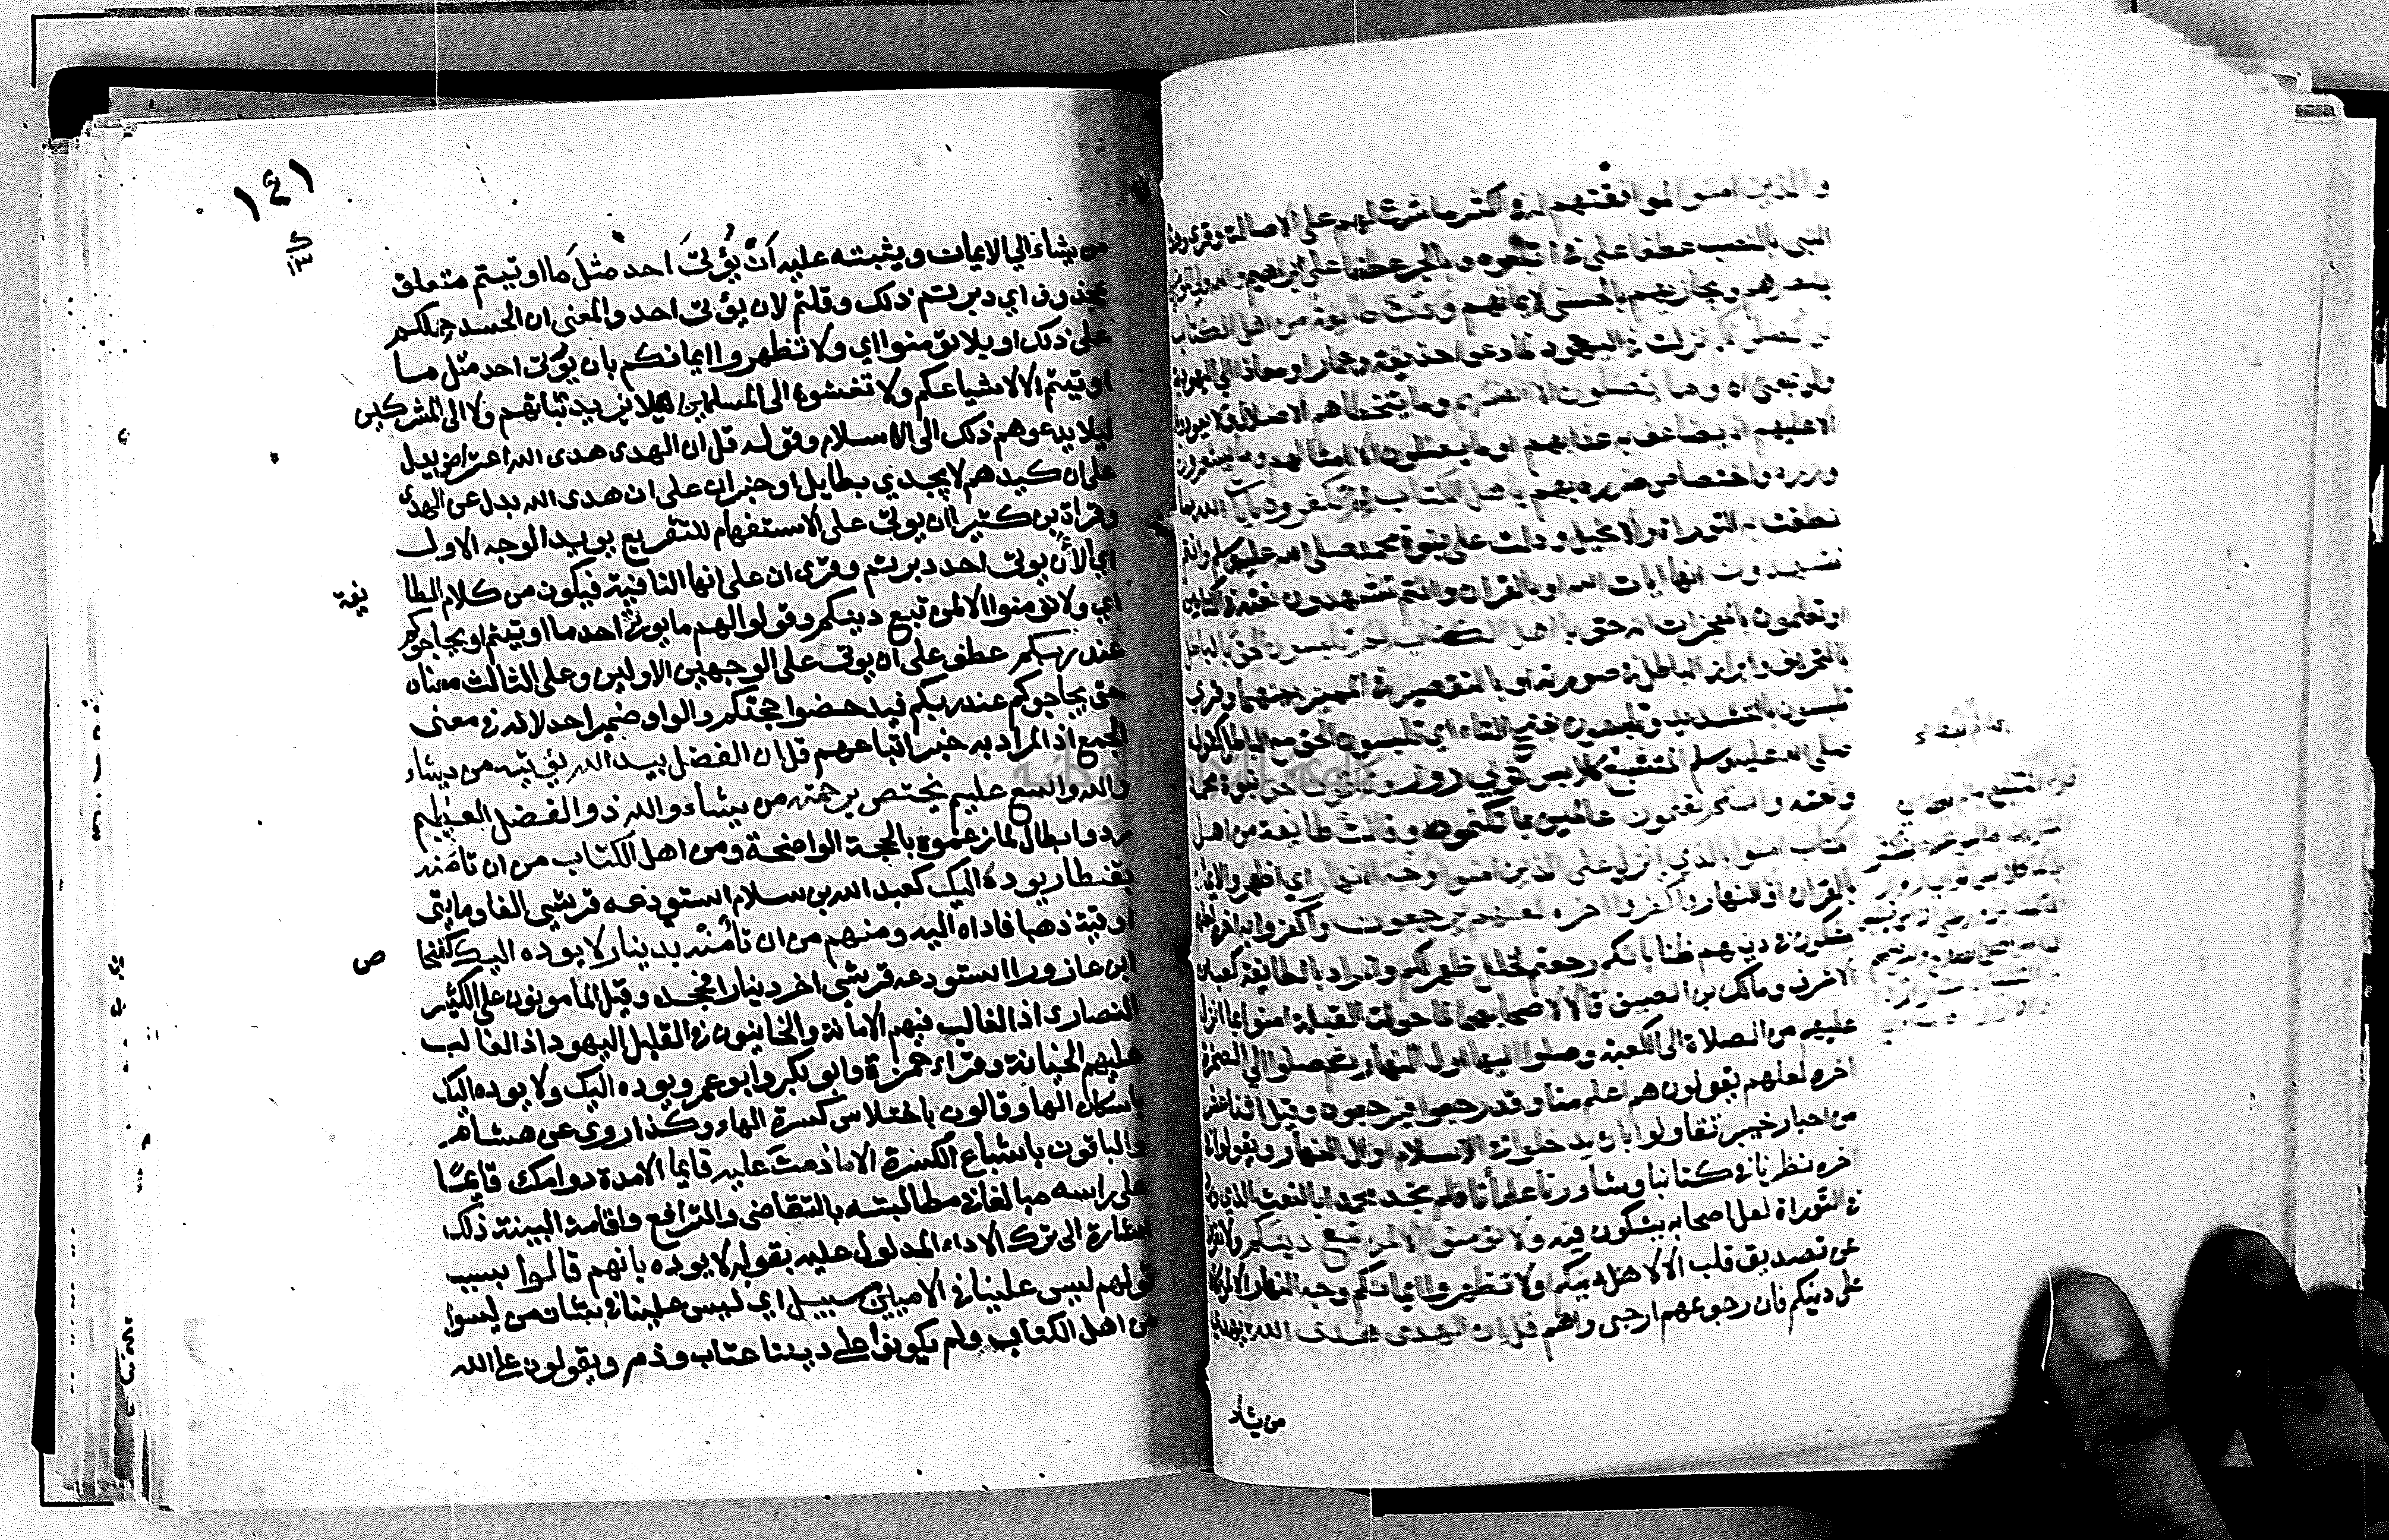 والذين امنوا لموافقتهم له في اكثر ما شرع لهم على الاصالة وقرئ
النبي بالنصب عطفا على الهاء في اتبعوه وبالجر عطفا على ابراهيم والله ولي المومنين
ينصرهم ويجازيهم بالحسنى لايمانهم ودت طايفة من اهل الكتاب
لو يضلونكم نزلت في اليهود لما دعوا حذيفة وعمارا ومعاذا الى اليهودية
ولو بمعنى ان وما يضلون الا انفسهم وما يتخطاهم الاضلال ولا يعود
الا عليهم اذ يضاعف به عذابهم او ما يضلون الا امثالهم وما يشعرون
وزره واختصاص ضرره بهم يا اهل الكتاب لم تكفرون بايات الله بما
نطقت به التوراة والانجيل ودلت على نبوة محمد صلى الله عليه وسلم وانتم
تشهدون انها ايات الله او بالقران وانتم تشهدون نعته في الكتابين
او تعلمون بالمعجزات انه حق يا اهل الكتاب لم تلبسون الحق بالباطل
بالتحريف وابراز الباطل في صورته او بالتقصير في التمييز بينهما وقرئ
تلبسون بالتشديد وتلبسون بفتح الباء اي تلبسون الحق مع الباطل كقوله
صلى الله عليه وسلم المتشبع كلابس ثوبي زور وتكتمون الحق نبوة محمد
ونعته وانتم تعلمون عالمين بما تكتمونه وقالت طايفة من اهل
الكتاب امنوا بالذي انزل على الذين امنوا وجه النهار اي اظهروا الايمان
بالقران اول النهار واكفروا اخره لعلهم يرجعون واكفروا به اخره لعلهم
يشكون في دينهم ظنا بانكم رجعتم لخلل ظهر لكم والمراد بالطايفة كعب بن
الاشرف ومالك بن الصيف قالا لاصحابهما لما حولت القبلة امنوا بما انزل
عليهم من الصلاة الى الكعبة وصلوا اليها اول النهار ثم صلوا الى الصخرة
اخره لعلهم يقولون هم اعلم منا وقد رجعوا فيرجعون وقيل اثنا عشر
من احبار خيبر تقاولوا بان يدخلوا في الاسلام اول النهار ويقولوا
اخره نظرنا في كتابنا وشاورنا علمانا فلم نجد محمدا بالنعت الذي ورد
في التوراة لعل اصحابه يشكون فيه ولا تومنوا الا لمن تبع دينكم ولا تقروا
عن تصديق قلب الا لاهل دينكم او لا تظهروا ايمانكم وجه النهار الا لمن كان
على دينكم فان رجوعهم ارجى واهم قل ان الهدى هدى الله يهدي
من يشاء
١٤١
ك
١٣
من يشاء الي الايمان ويثبته عليه ان يؤتى احد مثل ما اوتيتم متعلق
بمحذوف اي دبرتم ذلك وقلتم لان يؤتى احد والمعنى ان الحسد حملكم
على ذلك او بلا تؤمنوا اي ولا تظهروا ايمانكم بان يؤتى احد مثل ما
اوتيتم الا لاشياعكم ولا تفشوه الى المسلمين ليلا يزيد ثباتهم ولا الى المشركين
ليلا يدعوهم ذلك الى الاسلام وقوله قل ان الهدى هدى الله اعتراض يدل
على ان كيدهم لا يجدي بطايل او خبر ان على ان هدى الله بدل عن الهدى
وقراة بن كثير اان يوتى على الاستفهام للتقريع يويد الوجه الاول
اي الأن يوتى احد دبرتم وقرئ ان على انها النافية فيكون من كلام الطا
يفة
اي ولا تؤمنوا الا لمن تبع دينكم وقولوا لهم ما يوتى احد ما اوتيتم او يحاجوكم
عند ربكم عطف على ان يوتى على الوجهين الاولين وعلى الثالث معناه
حتى يحاجوكم عند ربكم فيدحضوا حجتكم والواو ضمير احد لانه في معنى
الجمع اذ المراد به غير اتباعهم قل ان الفضل بيد الله يؤتيه من يشاء
والله واسع عليم يختص برحمته من يشاء والله ذو الفضل العظيم
رد وابطال لما زعموه بالحجة الواضحة ومن اهل الكتاب من ان تامنه
بقنطار يوده اليك كعبد الله بن سلام استودعه قرشي الفا ومايتي
اوقية ذهبا فاداه اليه ومنهم من ان تأمنه بدينار لا يوده اليك كفنحا
ص
ابن عازورا استودعه قرشي اخر دينارا فجحده وقيل المأمونون على الكثير
النصارى اذ الغالب فيهم الامانة والخاينون في القليل اليهود اذ الغالب
عليهم الخيانة وقراء حمزة وابو بكر وابو عمرو يوده اليك ولا يوده اليك
باسكان الها وقالون باختلاس كسرة الهاء وكذا روي عن هشام
والباقون باشباع الكسرة الا ما دمت عليه قايما الا مدة دوامك قايمًا
على راسه مبالغا في مطالبته بالتقاضي والترافع واقامة البينة ذلك
اشارة الى ترك الاداء المدلول عليه بقوله لا يوده بانهم قالوا بسبب
قولهم ليس علينا في الاميين سبيل اي ليس علينا في شان من ليسوا
من اهل الكتاب ولم يكونوا على ديننا عتاب وذم ويقولون على الله